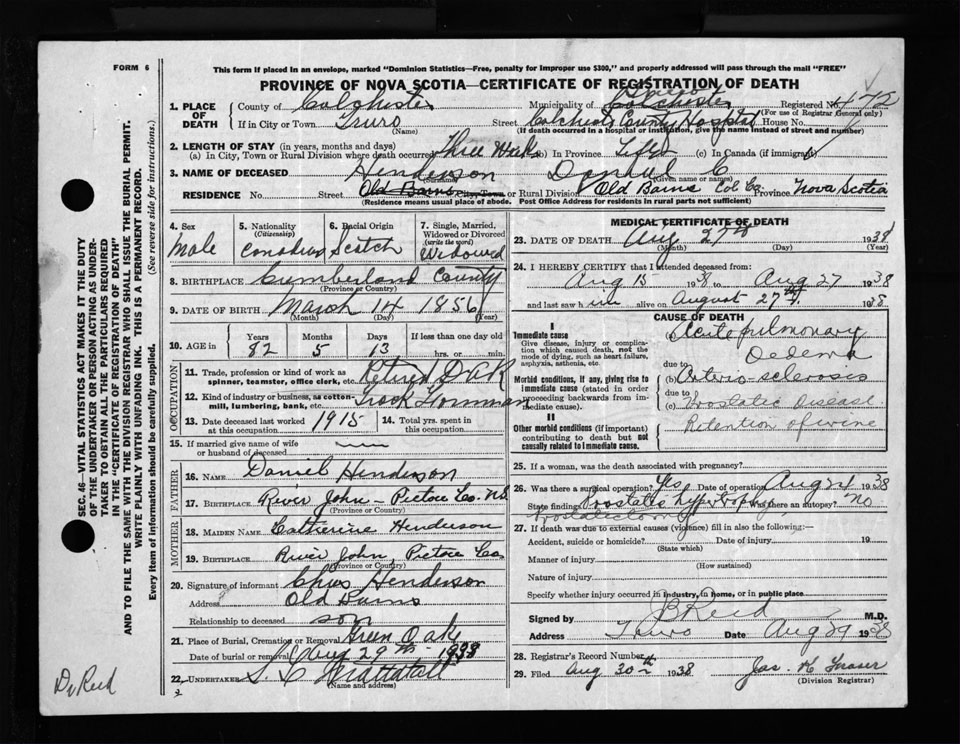 FORM 6
This form if placed in an envelope, marked "Dominion Statistics—Free, penalty for improper use $300," and properly addressed will pass through the mail "FREE"
PROVINCE OF NOVA SCOTIA—CERTIFICATE OF REGISTRATION OF DEATH
1. PLACE OF DEATH
County of Colchester Municipality of Colchester Registered No. 472
(For use of Registrar General only)
If in City or Town Truro Street Colchester County Hospital House No.
(Name) (If death occurred in a hospital or institution, give the name instead of street and number)
2. LENGTH OF STAY (in years, months and days)
(a) In City, Town or Rural Division where death occurred Three Weeks (b) In Province Life (c) In Canada (if immigrant)
3. NAME OF DECEASED Henderson C.
(Surname) (Given name or names)
RESIDENCE No. Street Old Barns City, Town or Rural Division Old Barns Col Co Province Nova Scotia
(Residence means usual place of abode. Post Office Address for residents in rural parts not sufficient)
4. Sex
Male
5. Nationality
(Citizenship)
Canadian
6. Racial Origin
Scotch
7. Single, Married, Widowed or Divorced
(write the word)
Widowed
8. BIRTHPLACE Cumberland County
(Province or Country)
9. DATE OF BIRTH March 14 1856
(Month) (Day) (Year)
10. AGE in
Years Months Days If less than one day old
82 5 13 hrs. or min.
OCCUPATION
11. Trade, profession or kind of work as spinner, teamster, office clerk, etc. Retired
12. Kind of industry or business, as cotton-mill, lumbering, bank, etc. Track Foreman
13. Date deceased last worked at this occupation 1915
14. Total yrs. spent in this occupation
15. If married give name of wife or husband of deceased
FATHER
16. NAME Daniel Henderson
17. BIRTHPLACE River John - Pictou Co. N.S.
(Province or Country)
MOTHER
18. MAIDEN NAME Catherine Henderson
19. BIRTHPLACE River John Pictou Co
(Province or Country)
20. Signature of informant Chas Henderson
Address Old Barns
Relationship to deceased son
21. Place of Burial, Cremation or Removal Green Oaks
Date of burial or removal Aug 29th 1938
22. UNDERTAKER
(Name and address)
MEDICAL CERTIFICATE OF DEATH
23. DATE OF DEATH Aug 27th 1938
(Month) (Day) (Year)
24. I HEREBY CERTIFY that I attended deceased from:
Aug 15 1938 to Aug 27 1938
and last saw him alive on August 27th 1938
CAUSE OF DEATH
I
Immediate cause
Give disease, injury or complication which caused death, not the mode of dying, such as heart failure, asphyxia, asthenia, etc.
(a) Acute pulmonary
Oedema
due to
Morbid conditions, if any, giving rise to immediate cause (stated in order proceeding backwards from immediate cause).
(b) Arterio-sclerosis
due to
(c) Prostatic Disease
II
Other morbid conditions (if important) contributing to death but not causally related to immediate cause.
Retention of urine
25. If a woman, was the death associated with pregnancy?
26. Was there a surgical operation? Yes Date of operation Aug 24 1938
State findings Prostatic hypertrophy Was there an autopsy? No
27. If death was due to external causes (violence) fill in also the following:—
Accident, suicide or homicide? Date of injury 19
(State which)
Manner of injury
(How sustained)
Nature of injury
Specify whether injury occurred in industry, in home, or in public place
Signed by J B Reid M.D.
Address Truro Date Aug 29 1938
28. Registrar's Record Number
29. Filed Aug 30th 1938 Jas. K. Fraser
(Division Registrar)
SEC. 46—VITAL STATISTICS ACT MAKES IT THE DUTY
OF THE UNDERTAKER OR PERSON ACTING AS UNDER-
TAKER TO OBTAIN ALL THE PARTICULARS REQUIRED
IN THE "CERTIFICATE OF REGISTRATION OF DEATH"
AND TO FILE THE SAME WITH THE DIVISION REGISTRAR WHO SHALL ISSUE THE BURIAL PERMIT.
WRITE PLAINLY WITH UNFADING INK. THIS IS A PERMANENT RECORD.
Every item of information should be carefully supplied. (See reverse side for instructions.)
Dr Reid